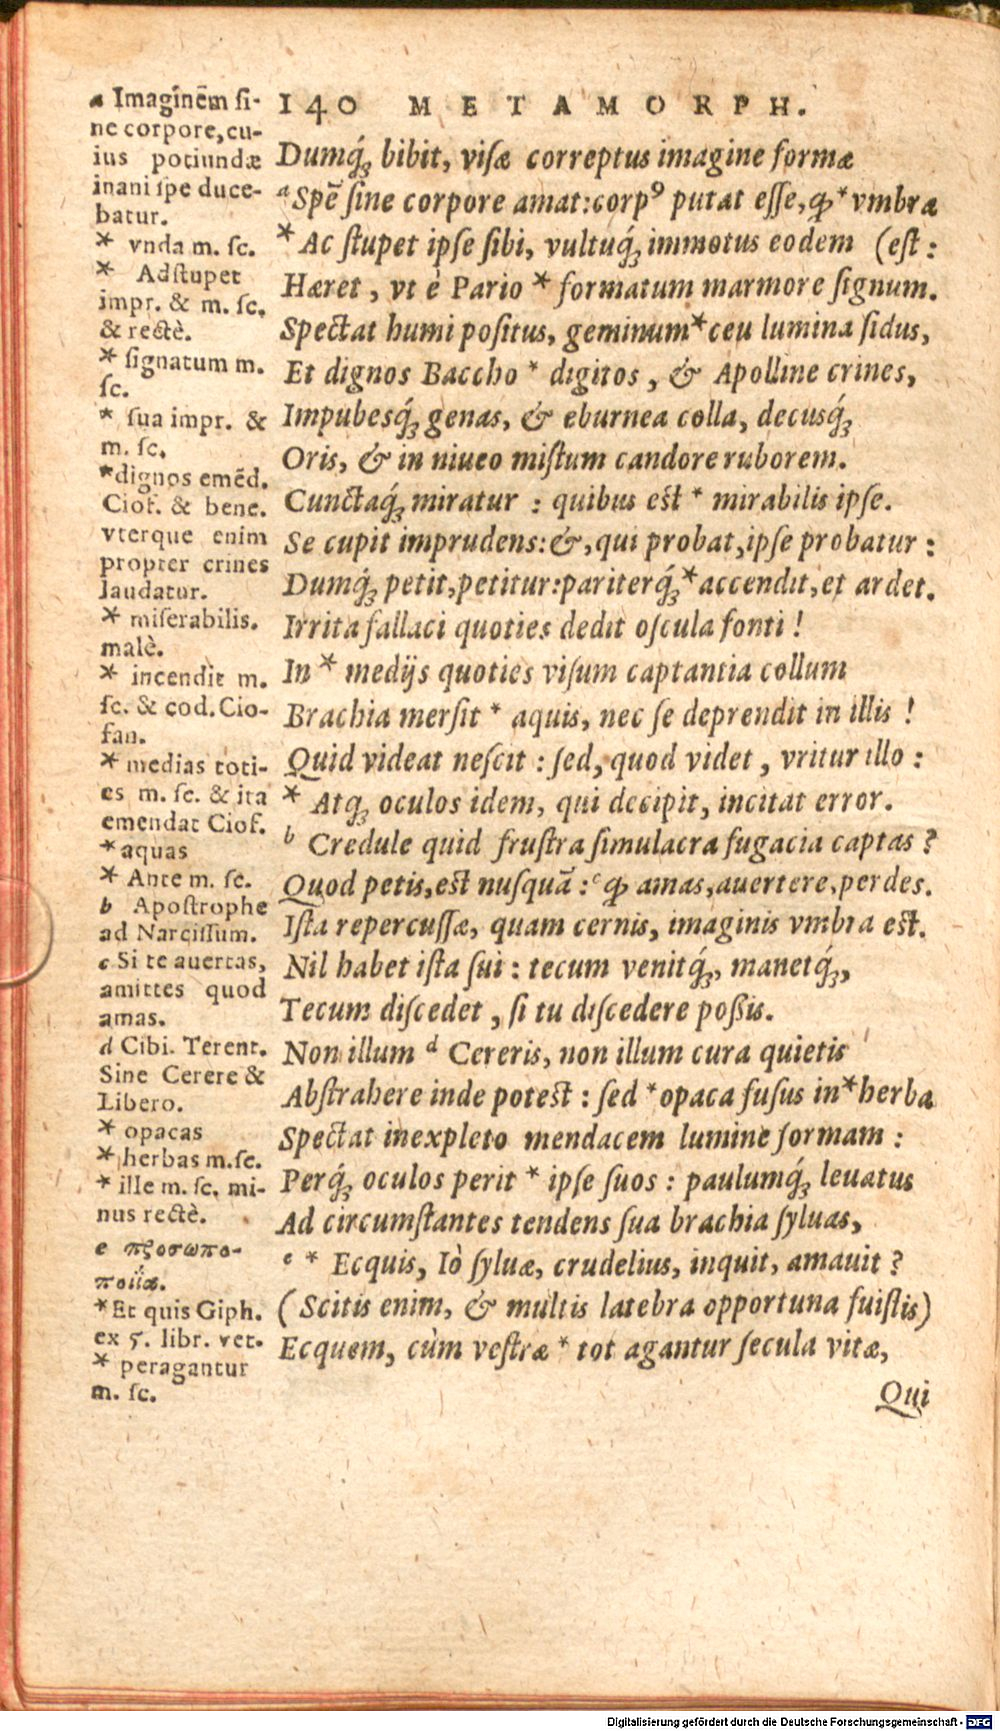 140 METAMORPH.
Dumq́ꝫ bibit, viſæ correptus imagine formæ
ᵃSpē ſine corpore amat:corpꝰ putat eſſe,ꝙ * vmbra
* Ac ſtupet ipſe ſibi, vultuq́ꝫ immotus eodem (eſt :
Hæret, vt è Pario * formatum marmore ſignum.
Spectat humi poſitus, geminum * ceu lumina ſidus,
Et dignos Baccho * digitos, & Apolline crines,
Impubesq́ꝫ genas, & eburnea colla, decusq́ꝫ
Oris, & in niueo miſtum candore ruborem.
Cunctaq́ꝫ miratur : quibus eſt * mirabilis ipſe.
Se cupit imprudens:&, qui probat, ipſe probatur :
Dumq́ꝫ petit, petitur:pariterq́ꝫ * accendit, et ardet.
Irrita fallaci quoties dedit oſcula fonti !
In * medijs quoties viſum captantia collum
Brachia merſit * aquis, nec ſe deprendit in illis !
Quid videat neſcit : ſed, quod videt, vritur illo :
* Atqꝫ oculos idem, qui decipit, incitat error.
ᵇ Credule quid fruſtra ſimulacra fugacia captas ?
Quod petis, eſt nuſquā : ᶜꝙ amas, auertere, perdes.
Iſta repercuſſæ, quam cernis, imaginis vmbra eſt.
Nil habet iſta ſui : tecum venitq́ꝫ, manetq́ꝫ,
Tecum diſcedet, ſi tu diſcedere poſſis.
Non illum ᵈ Cereris, non illum cura quietis
Abſtrahere inde poteſt : ſed * opaca fuſus in * herba
Spectat inexpleto mendacem lumine formam :
Perq́ꝫ oculos perit * ipſe ſuos : paulumq́ꝫ leuatus
Ad circumſtantes tendens ſua brachia ſyluas,
ᵉ * Ecquis, Iò ſyluæ, crudelius, inquit, amauit ?
(Scitis enim, & multis latebra opportuna fuiſtis)
Ecquem, cùm veſtræ * tot agantur ſecula vitæ,
Qui
a Imaginēm ſi-
ne corpore, cu-
ius potiundæ
inani ſpe duce-
batur.
* vnda m. ſc.
* Adſtupet
impr. & m. ſc.
& rectè.
* ſignatum m.
ſc.
* ſua impr. &
m. ſc.
* dignos emēd.
Ciof. & bene.
vterque enim
propter crines
laudatur.
* miſerabilis.
malè.
* incendit m.
ſc. & cod. Cio-
fan.
* medias toti-
es m. ſc. & ita
emendat Ciof.
* aquas
* Ante m. ſc.
b Apoſtrophe
ad Narciſſum.
c Si te auertas,
amittes quod
amas.
d Cibi. Terent.
Sine Cerere &
Libero.
* opacas
* herbas m.ſc.
* ille m. ſc. mi-
nus rectè.
e προσωπο-
ποιΐα.
* Et quis Giph.
ex 5. libr. vet.
* peragantur
m. ſc.
Digitalisierung gefördert durch die Deutsche Forschungsgemeinschaft - DFG